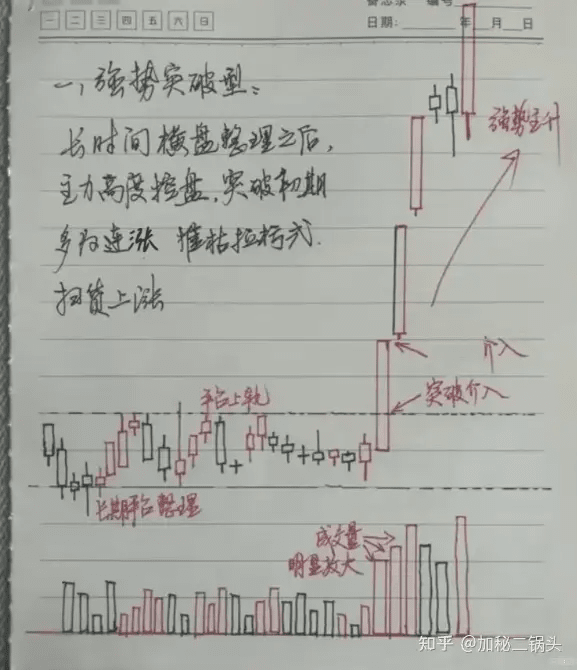 备忘录 编号
一 二 三 四 五 六 日
日期: 年 月 日
一,强势突破型:
长时间横盘整理之后,
主力高度控盘,突破初期
多为连涨 摧枯拉朽式.
扫货上涨
强势主升
介入
突破介入
平台上轨
长期平台整理
成交量
明显放大
知乎 @加秘二锅头